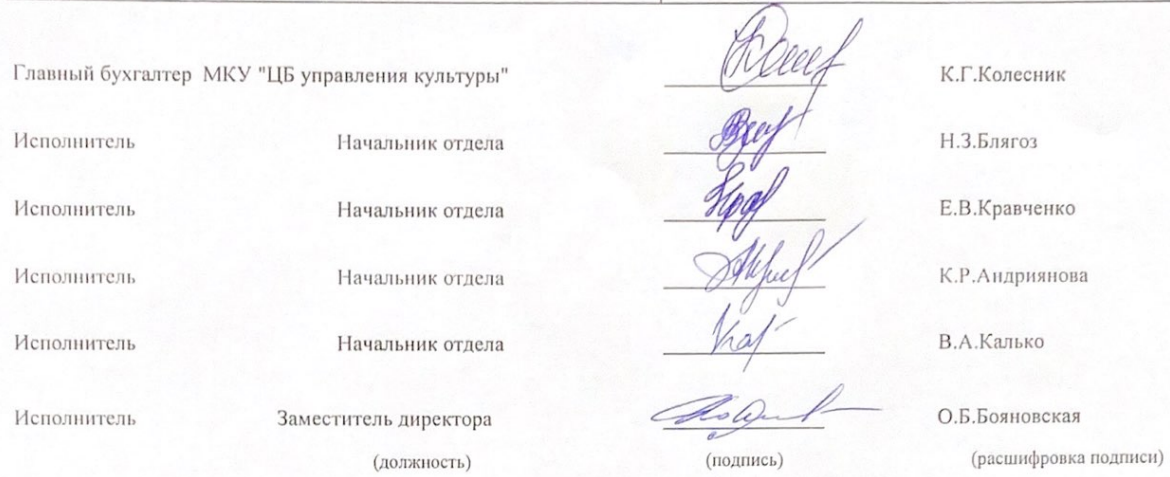 Главный бухгалтер МКУ "ЦБ управления культуры" К.Г.Колесник
Исполнитель Начальник отдела Н.З.Блягоз
Исполнитель Начальник отдела Е.В.Кравченко
Исполнитель Начальник отдела К.Р.Андриянова
Исполнитель Начальник отдела В.А.Калько
Исполнитель Заместитель директора О.Б.Бояновская
(должность) (подпись) (расшифровка подписи)